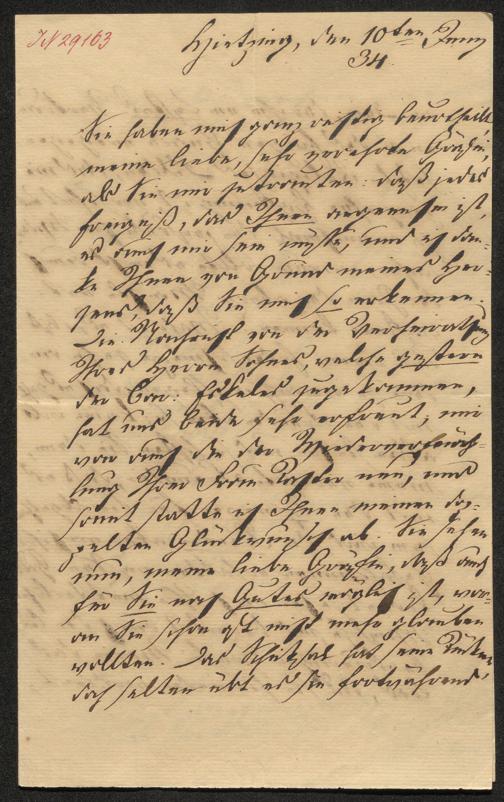 IN 29163
Hietzing, den 10ten Juny
34.
Sie haben mich ganz richtig beurtheilt,
meine liebe, sehr verehrte Gräfin,
als Sie mir zutrauten: daß jedes
Ereigniß, das Ihnen angenehm ist,
es auch mir sein müsse, und ich dan-
ke Ihnen von Grund meines Her-
zens, daß Sie mich so erkennen.
Die Nachricht von der Verheirathung
Ihres Herrn Sohnes, welche gestern
der Bar: Eskeles zugekommen,
hat uns beide sehr erfreut; mir
war auch die der Wiedervermäh-
lung Ihrer Frau Tochter neu, und
somit statte ich Ihnen meinen dop-
pelten Glückwunsch ab. Sie sehen
nun, meine liebe Gräfin, daß auch
für Sie noch Gutes möglich ist, wor-
an Sie schon oft nicht mehr glauben
wollten. Das Schicksal hat seine Tücken
doch selten übt es sie fortwährend